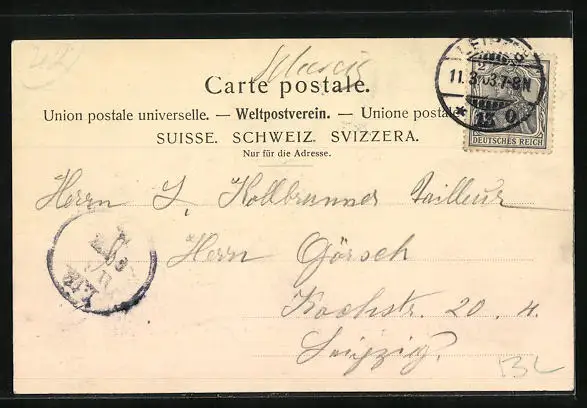 Carte postale.
Union postale universelle. — Weltpostverein. — Unione postale
SUISSE. SCHWEIZ. SVIZZERA.
Nur für die Adresse.
LEIPZIG
11.3.03.7-8N
* 13 O
2
DEUTSCHES REICH
Herrn J. Kollbrunner Tailleur
Herrn Görsch
Kochstr. 20. 4.
Leipzig.
BL